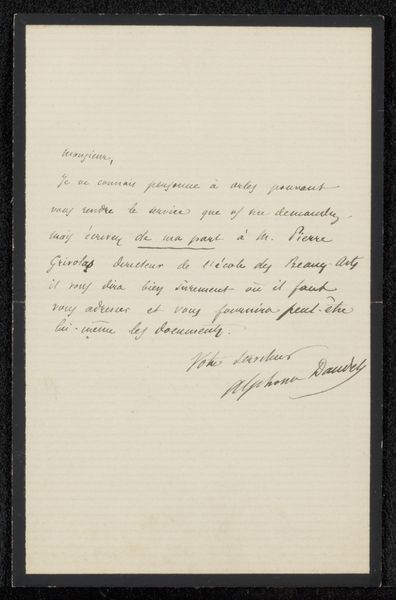 Monsieur,
Je ne connais personne à Arles pouvant
vous rendre le service que vs me demandez
mais écrivez de ma part à M. Pierre
Grivolas directeur de l'école des Beaux-Arts
il vous dira bien sûrement où il faut
vous adresser et vous fournira peut-être
lui-même les documents.
Votre serviteur
Alphonse Daudet